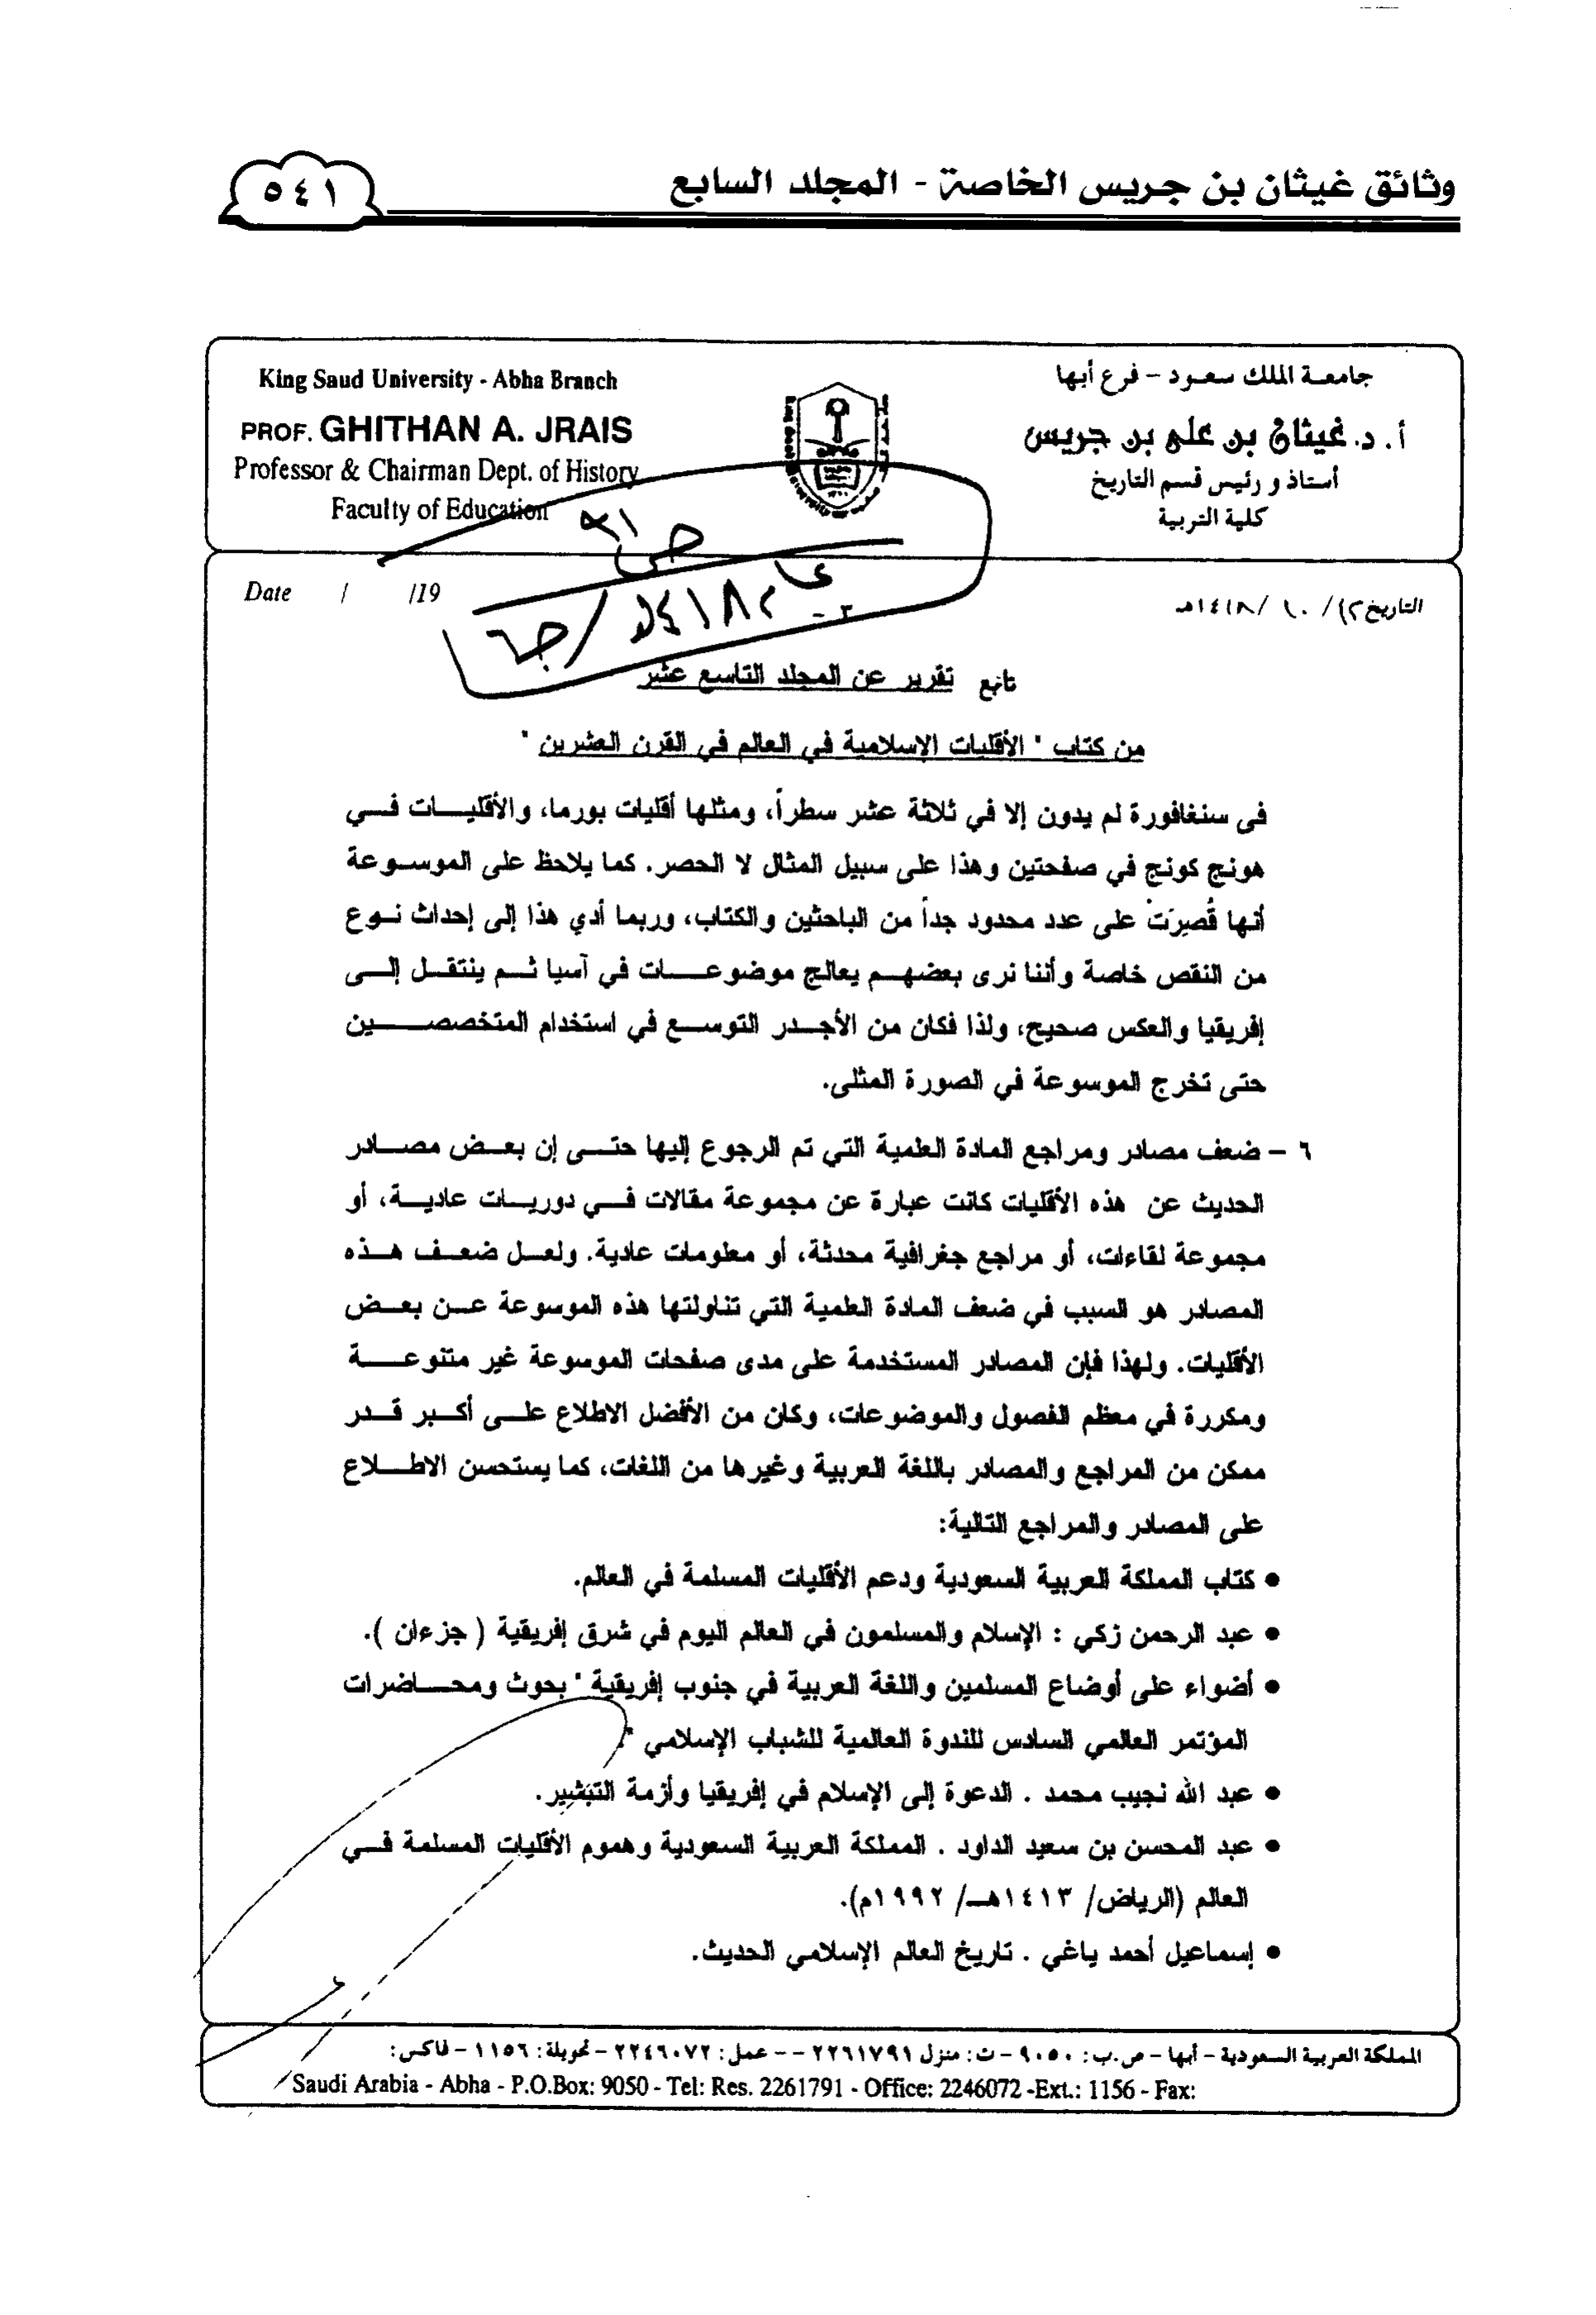 وثائق غيثان بن جريس الخاصة - المجلد السابع
٥٤١
جامعة الملك سعود - فرع أبها
أ. د. غيثان بن علي بن جريس
أستاذ و رئيس قسم التاريخ
كلية التربية
King Saud University - Abha Branch
PROF. GHITHAN A. JRAIS
Professor & Chairman Dept. of History
Faculty of Education
التاريخ ١٢/ ١٠/ ١٤١٨هـ
Date / /19
عام ١٤١٨هـ / جـ
-٣-
تابع تقرير عن المجلد التاسع عشر
من كتاب " الأقليات الإسلامية في العالم في القرن العشرين "
فى سنغافورة لم يدون إلا في ثلاثة عشر سطراً، ومثلها أقليات بورما، والأقليـــات فـــي
هونج كونج في صفحتين وهذا على سبيل المثال لا الحصر. كما يلاحظ على الموسـوعة
أنها قُصِرَت على عدد محدود جداً من الباحثين والكتاب، وربما أدي هذا إلى إحداث نـوع
من النقص خاصة وأننا نرى بعضهـم يعالج موضوعـــات في آسيا ثـم ينتقـل إلـى
إفريقيا والعكس صحيح، ولذا فكان من الأجـدر التوسـع في استخدام المتخصصـــين
حتى تخرج الموسوعة في الصورة المثلى.
٦ - ضعف مصادر ومراجع المادة العلمية التي تم الرجوع إليها حتـى إن بعـض مصـادر
الحديث عن هذه الأقليات كانت عبارة عن مجموعة مقالات فـي دوريـات عاديـة، أو
مجموعة لقاءات، أو مراجع جغرافية محدثة، أو معلومات عادية. ولعـل ضعـف هـذه
المصادر هو السبب في ضعف المادة العلمية التي تناولتها هذه الموسوعة عـن بعـض
الأقليات. ولهذا فإن المصادر المستخدمة على مدى صفحات الموسوعة غير متنوعـــة
ومكررة في معظم الفصول والموضوعات، وكان من الأفضل الاطلاع علـى أكـبر قـدر
ممكن من المراجع والمصادر باللغة العربية وغيرها من اللغات، كما يستحسن الاطـلاع
على المصادر والمراجع التالية:
• كتاب المملكة العربية السعودية ودعم الأقليات المسلمة في العالم.
• عبد الرحمن زكي : الإسلام والمسلمون في العالم اليوم في شرق إفريقية ( جزءان ).
• أضواء على أوضاع المسلمين واللغة العربية في جنوب إفريقية " بحوث ومحـاضرات
المؤتمر العالمي السادس للندوة العالمية للشباب الإسلامي ".
• عبد الله نجيب محمد . الدعوة إلى الإسلام في إفريقيا وأزمة التبشير.
• عبد المحسن بن سعيد الداود . المملكة العربية السعودية وهموم الأقليات المسلمة فـي
العالم (الرياض/ ١٤١٣هـ/ ١٩٩٢م).
• إسماعيل أحمد ياغي . تاريخ العالم الإسلامي الحديث.
المملكة العربية السعودية - أبها - ص.ب: ٩٠٥٠ - ت: منزل ٢٢٦١٧٩١ - - عمل: ٢٢٤٦٠٧٢ - تحويلة: ١١٥٦ - فاكس:
Saudi Arabia - Abha - P.O.Box: 9050 - Tel: Res. 2261791 - Office: 2246072 -Ext.: 1156 - Fax: